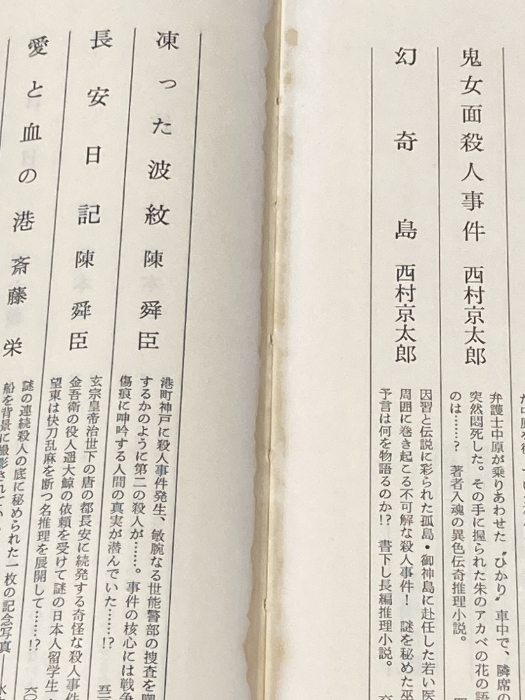 鬼女面殺人事件 西村京太郎
弁護士中原が乗りあわせた〝ひかり〟車中で、隣席の
突然悶死した。その手に握られた朱のアカベの花の謎
のは……? 著者入魂の異色伝奇推理小説。
幻奇島 西村京太郎
因習と伝説に彩られた孤島・御神島に赴任した若い医
周囲に巻き起こる不可解な殺人事件! 謎を秘めた巫
予言は何を物語るのか!? 書下し長編推理小説。
凍った波紋 陳舜臣
港町神戸に殺人事件発生、敏腕なる世能警部の捜査を
するかのように第二の殺人が……。事件の核心には戦争
傷痕に呻吟する人間の真実が潜んでいた……!?
長安日記 陳舜臣
玄宗皇帝治世下の唐の都長安に続発する奇怪な殺人事件
金吾衛の役人逈大鯨の依頼を受けて謎の日本人留学生
望東は快刀乱麻を断つ名推理を展開して……!?
愛と血の港 斎藤栄
謎の連続殺人の底に秘められた一枚の記念写真
船を背景に撮影されてい